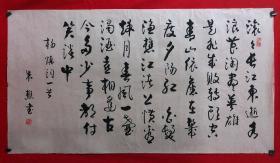 滚滚长江东逝水
浪花淘尽英雄
是非成败转头空
青山依旧在几
度夕阳红白发
渔樵江渚上惯看
秋月春风一壶
浊酒喜相逢古
今多少事都付
笑谈中
杨慎词一首